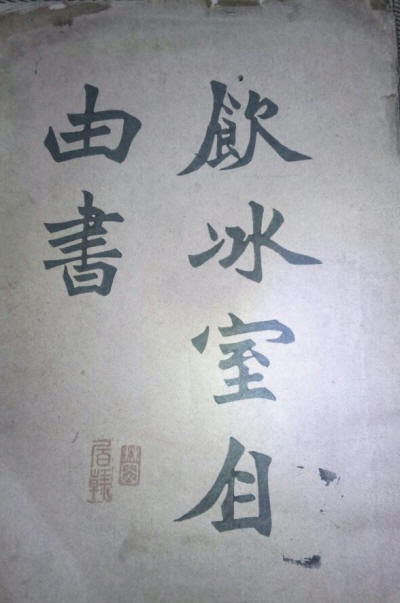 飲冰室自
由書